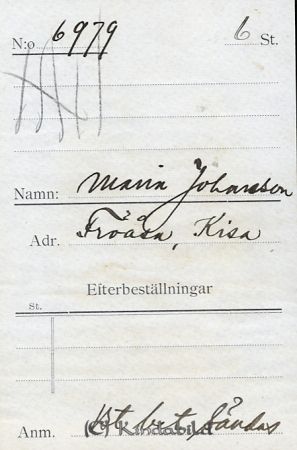 N:o 6979 6 St.
Namn: Maria Johansson
Adr. Fröåsa, Kisa
Efterbeställningar
St.
Anm. Sändas
(C) Kindabild